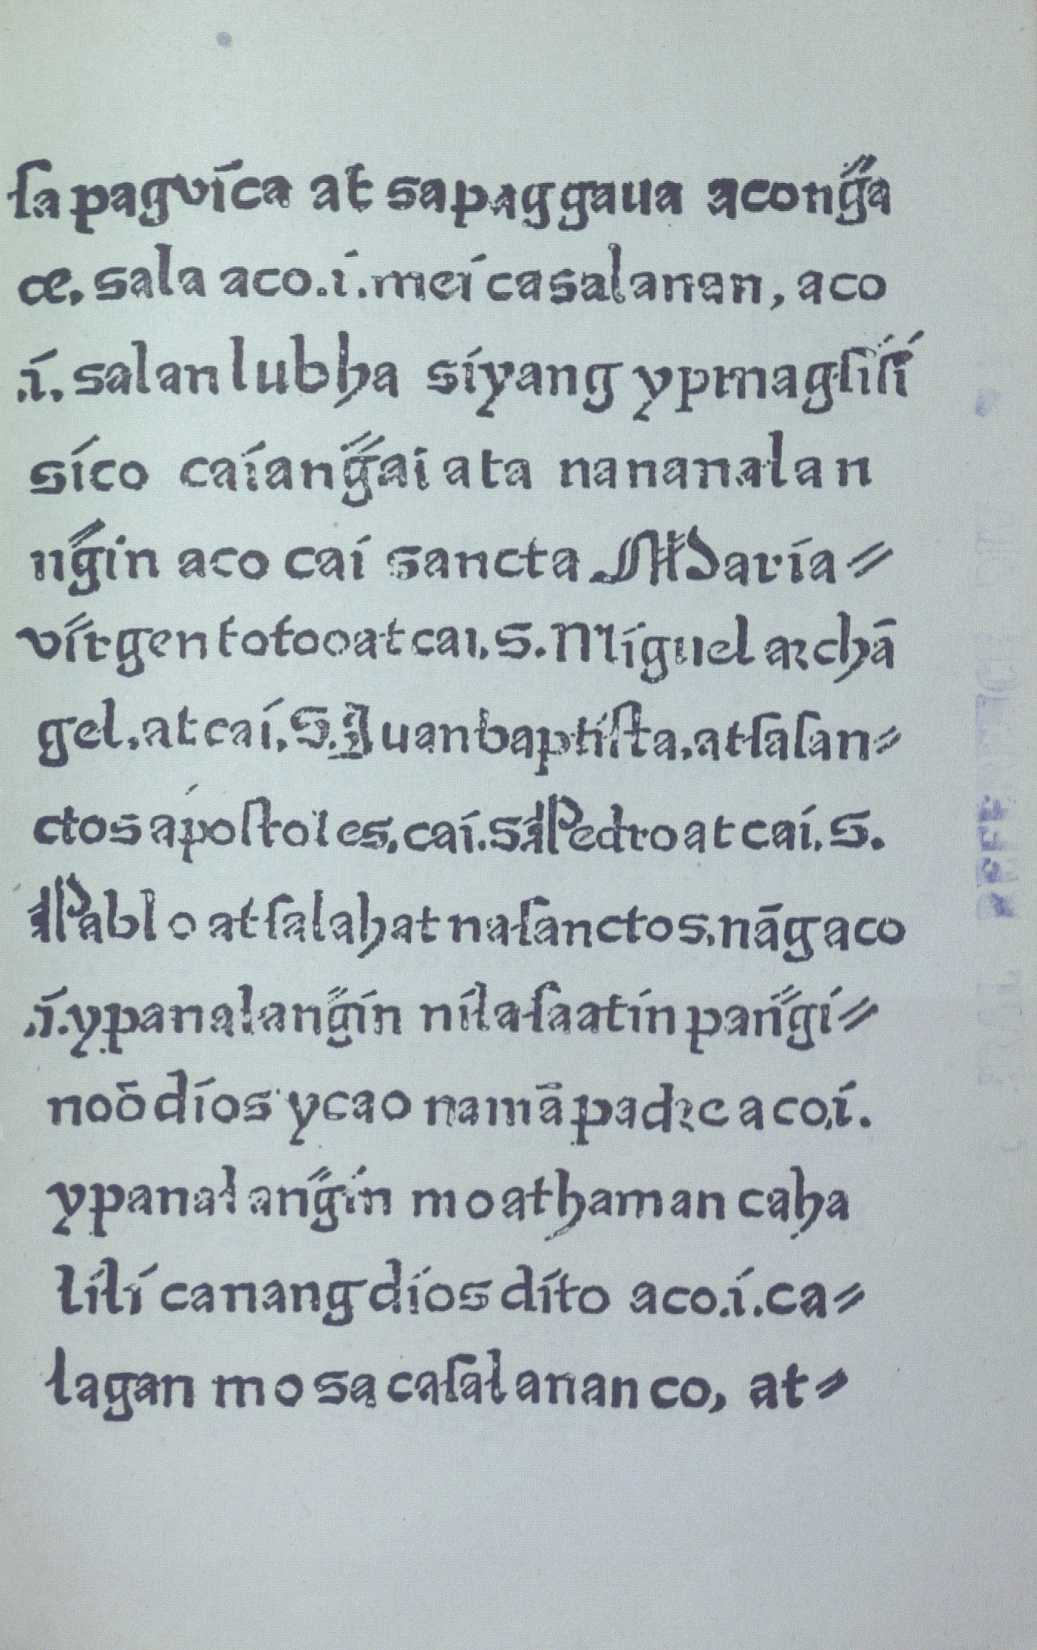 ſa pagvíca at sa paggaua acong̃a
œ, sala aco.í.meí casalanan, aco
.í. salan lubha síyang ypinagſíſí
síco caíang̃ai ata nananalan
ng̃in aco caí sancta María=
vírgen totoo at cai.S. Míguel archā
gel, at caí.S. Juan baptíſta, at ſa ſan=
ctos apoſtoles, caí.S. Pedro at caí.S.
Pablo at ſa lahat na ſanctos, nāg aco
.í. ypanalang̃ín níla ſa atín pang̃í=
noō díos ycao namā padre aco,í.
ypanalang̃ín mo at haman caha
lílí ca nang díos díto aco.í.ca=
lagan mo sa caſalanan co, at=